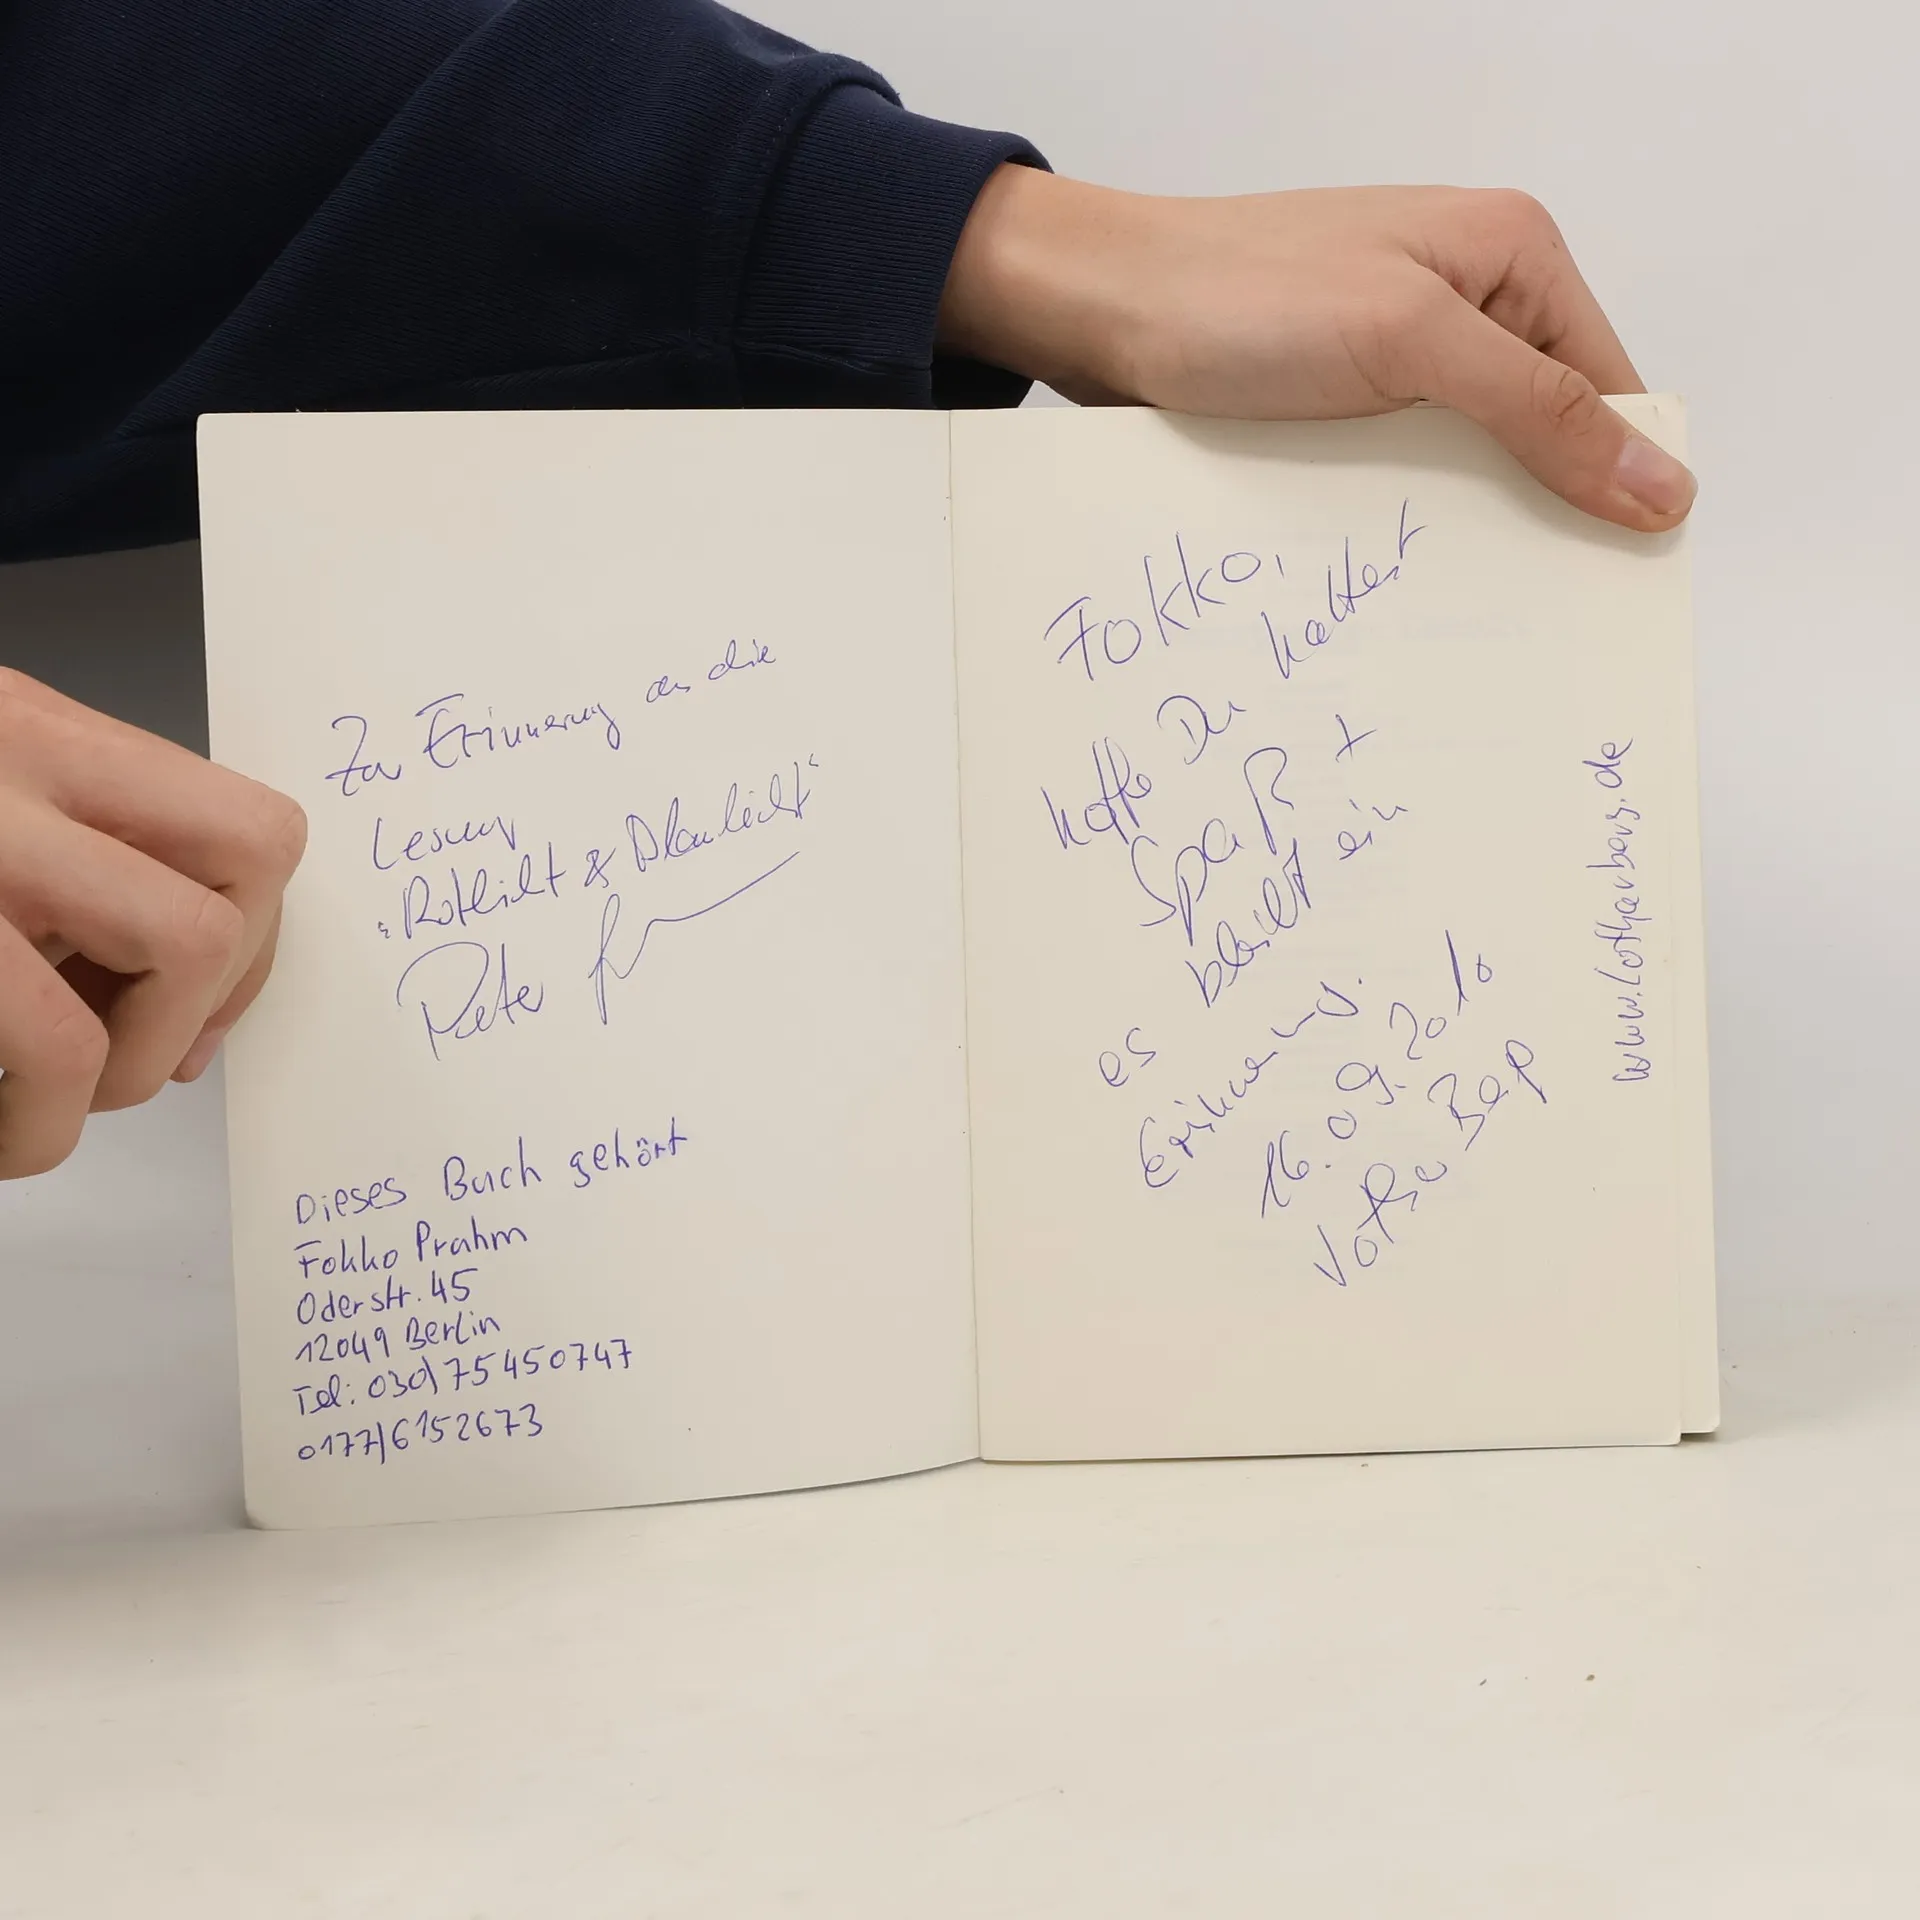 Zur Erinnerung an die
Lesung
„Rotlicht & Blaulicht“
Peter
Dieses Buch gehört
Fokko Prahm
Oderstr. 45
12049 Berlin
Tel: 030/75450747
0177/6152673
Fokko,
hoffe Du hattest
Spaß +
es bleibt ein
Erinnerung.
16.09.2010
Lothar Berg
www.lotharberg.de